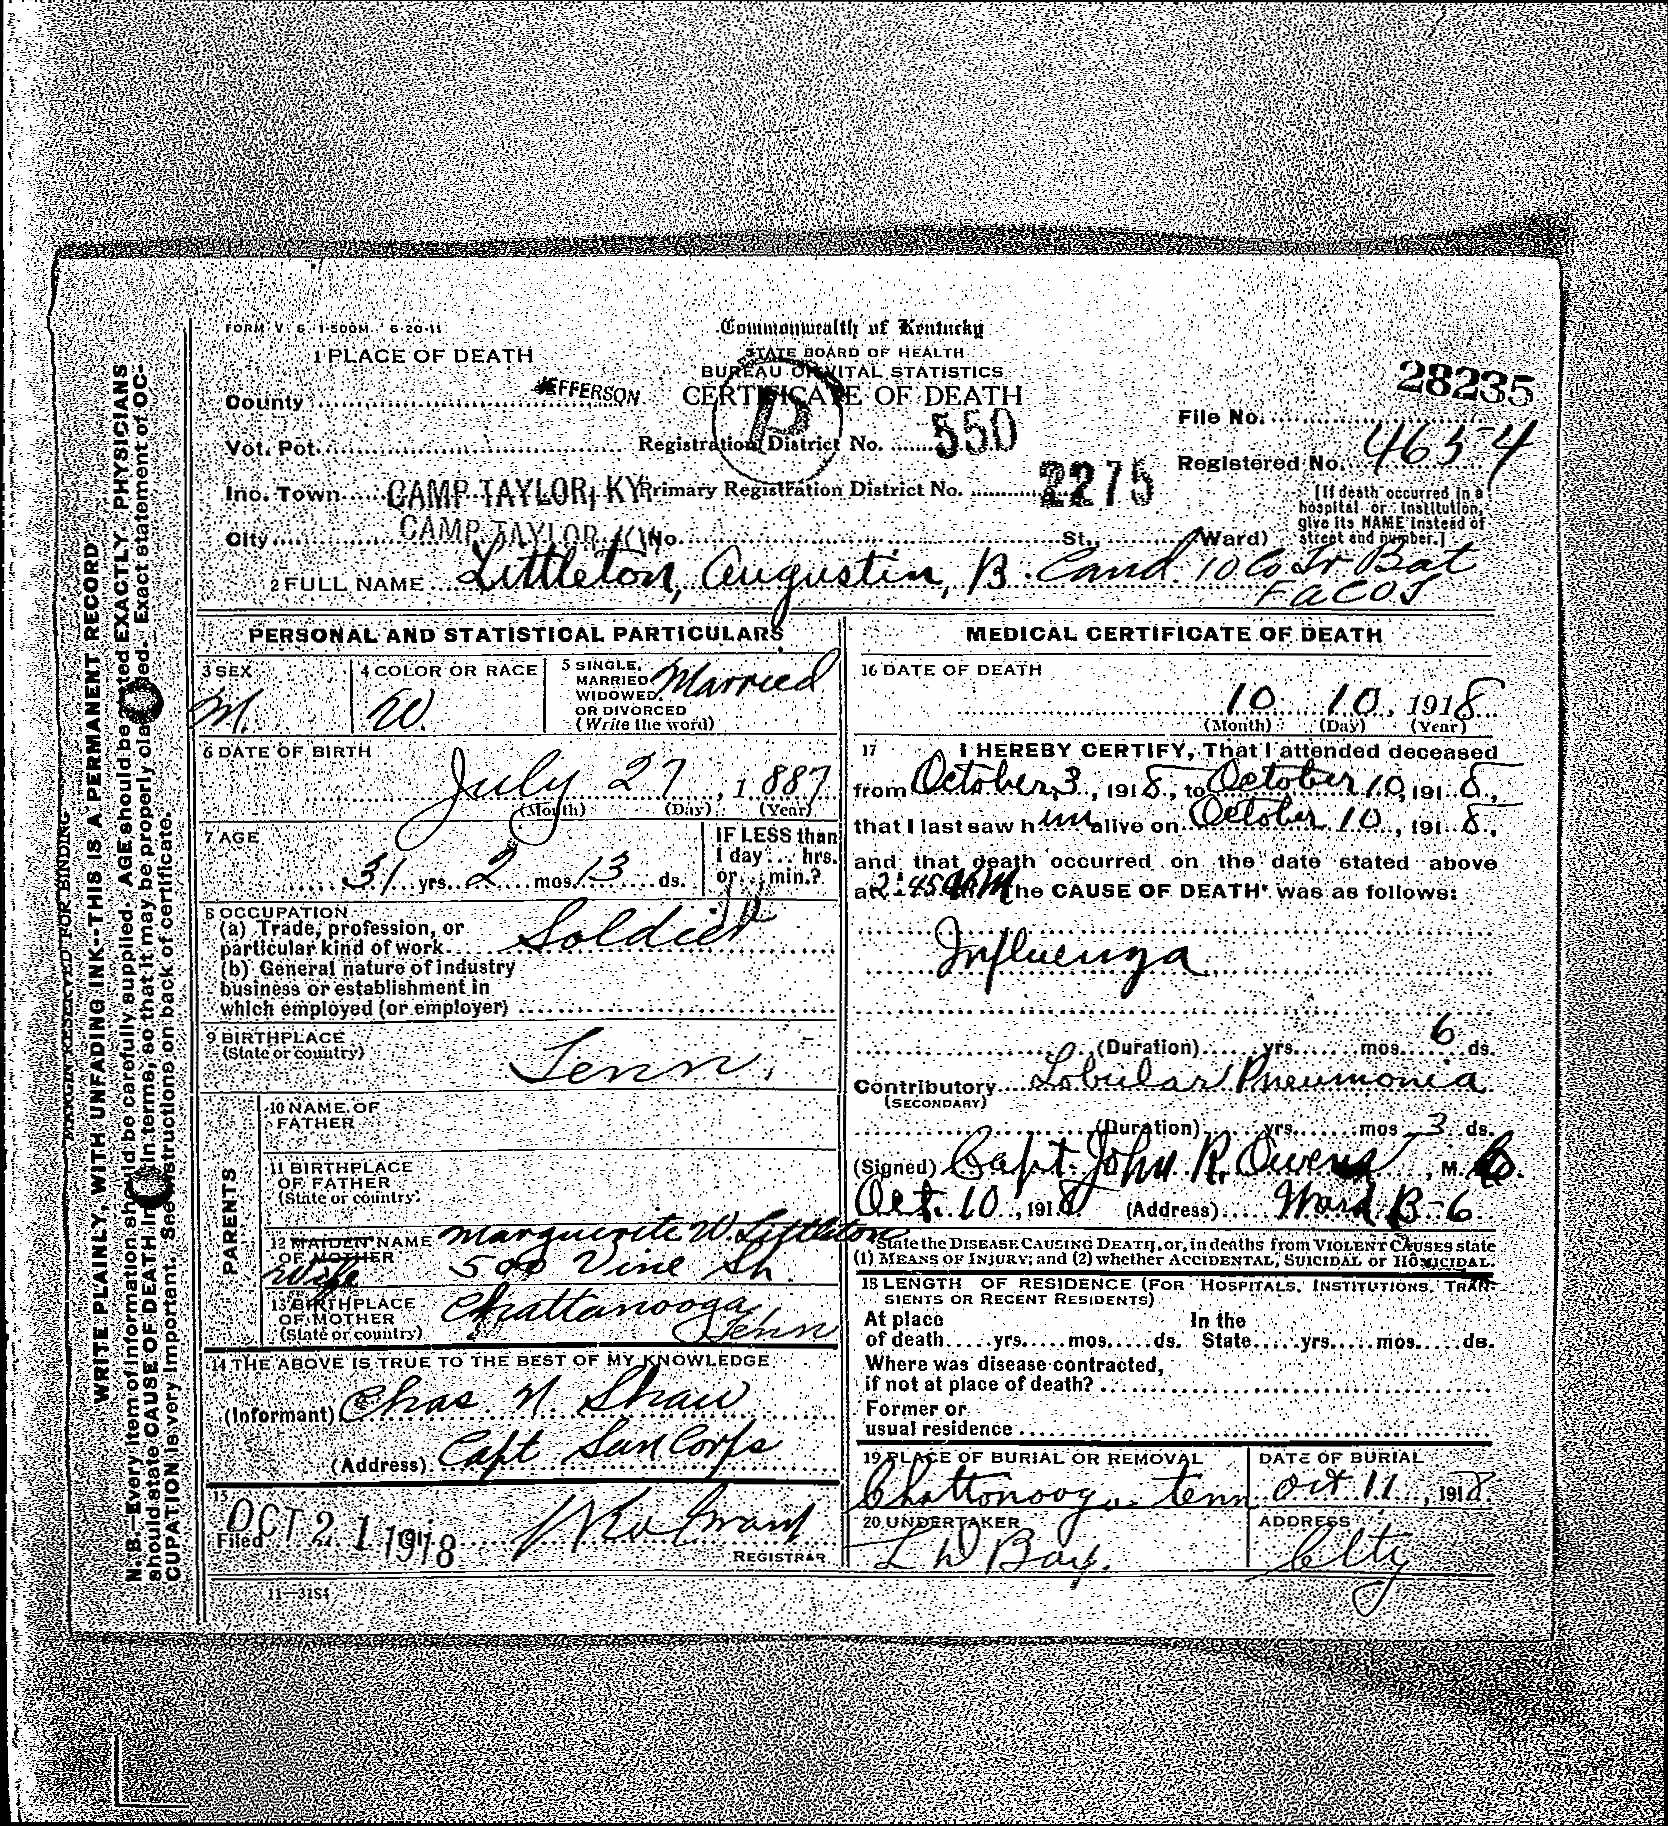 FORM V. S. 1-500M. 6-20-11
Commonwealth of Kentucky
STATE BOARD OF HEALTH
BUREAU OF VITAL STATISTICS
CERTIFICATE OF DEATH
1 PLACE OF DEATH
28235
County JEFFERSON
File No.
Vot. Pct.
Registration District No. 550
Registered No. 4654
Inc. Town CAMP TAYLOR, KY
Primary Registration District No. 2275
City CAMP TAYLOR, KY No. St., Ward)
[If death occurred in a
hospital or institution,
give its NAME instead of
street and number.]
P
2 FULL NAME Littleton, Augustin, B. Cand. 10 Co Tr Bat
FaCOT
PERSONAL AND STATISTICAL PARTICULARS
3 SEX
M.
4 COLOR OR RACE
W.
5 SINGLE,
MARRIED
WIDOWED,
OR DIVORCED
(Write the word)
Married
6 DATE OF BIRTH
July 27, 1887
(Month) (Day) (Year)
7 AGE
31 yrs. 2 mos. 13 ds.
IF LESS than
1 day... hrs.
or... min.?
8 OCCUPATION
(a) Trade, profession, or
particular kind of work Soldier
(b) General nature of industry
business or establishment in
which employed (or employer)
9 BIRTHPLACE
(State or country)
Tenn.
PARENTS
10 NAME OF
FATHER
11 BIRTHPLACE
OF FATHER
(State or country)
12 MAIDEN NAME
OF MOTHER
Wife
Marguerite W Littleton
500 Vine St.
13 BIRTHPLACE
OF MOTHER
(State or country)
Chattanooga,
Tenn
14 THE ABOVE IS TRUE TO THE BEST OF MY KNOWLEDGE
(Informant) Chas N Shaw
(Address) Capt San Corps
15
Filed OCT 21 1918
REGISTRAR
11-3151
MEDICAL CERTIFICATE OF DEATH
16 DATE OF DEATH
10 10, 1918
(Month) (Day) (Year)
17 I HEREBY CERTIFY, That I attended deceased
from October 3, 1918, to October 10, 1918,
that I last saw him alive on October 10, 1918,
and that death occurred on the date stated above
at 2:45 M The CAUSE OF DEATH* was as follows:
Influenza
(Duration) yrs. mos. 6 ds.
Contributory Lobular Pneumonia
(SECONDARY)
(Duration) yrs. mos 3 ds.
(Signed) Capt. John R. Owens, M.
Oct. 10, 1918 (Address) Ward B-6
State the DISEASE CAUSING DEATH, or, in deaths from VIOLENT CAUSES state
(1) MEANS OF INJURY; and (2) whether ACCIDENTAL, SUICIDAL or HOMICIDAL.
18 LENGTH OF RESIDENCE (FOR HOSPITALS, INSTITUTIONS, TRAN-
SIENTS OR RECENT RESIDENTS)
At place In the
of death yrs. mos. ds. State yrs. mos. ds.
Where was disease contracted,
if not at place of death?
Former or
usual residence
19 PLACE OF BURIAL OR REMOVAL
Chattonooga. tenn
DATE OF BURIAL
Oct 11, 1918
20 UNDERTAKER
ADDRESS
City
MARGIN RESERVED FOR BINDING
WRITE PLAINLY, WITH UNFADING INK--THIS IS A PERMANENT RECORD
N. B.--Every item of information should be carefully supplied. AGE should be stated EXACTLY. PHYSICIANS
should state CAUSE OF DEATH in terms, so that it may be properly classed. Exact statement of OC-
CUPATION is very important. See instructions on back of certificate.